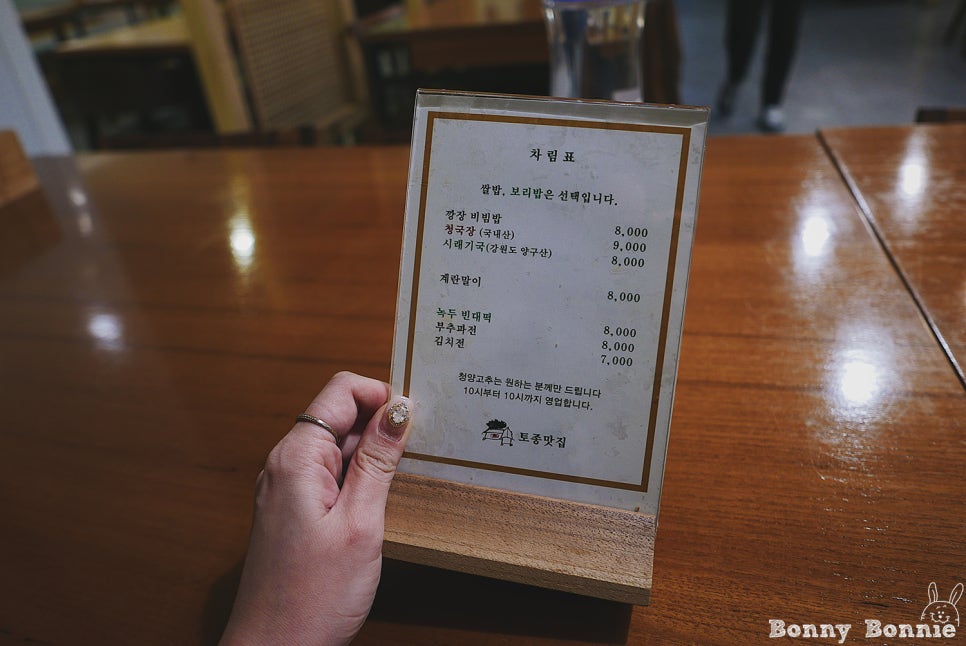 차림표
쌀밥, 보리밥은 선택입니다.
깡장 비빔밥 8,000
청국장 (국내산) 9,000
시래기국(강원도 양구산) 8,000
계란말이 8,000
녹두 빈대떡 8,000
부추파전 8,000
김치전 7,000
청양고추는 원하는 분께만 드립니다
10시부터 10시까지 영업합니다.
토종맛집
Bonny Bonnie